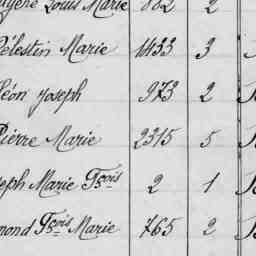 Louis Marie 882 2
Célestin Marie 1433 3
Léon Joseph 973 2
Pierre Marie 2315 5
Marie Fçois 2 1
Fçois Marie 765 2